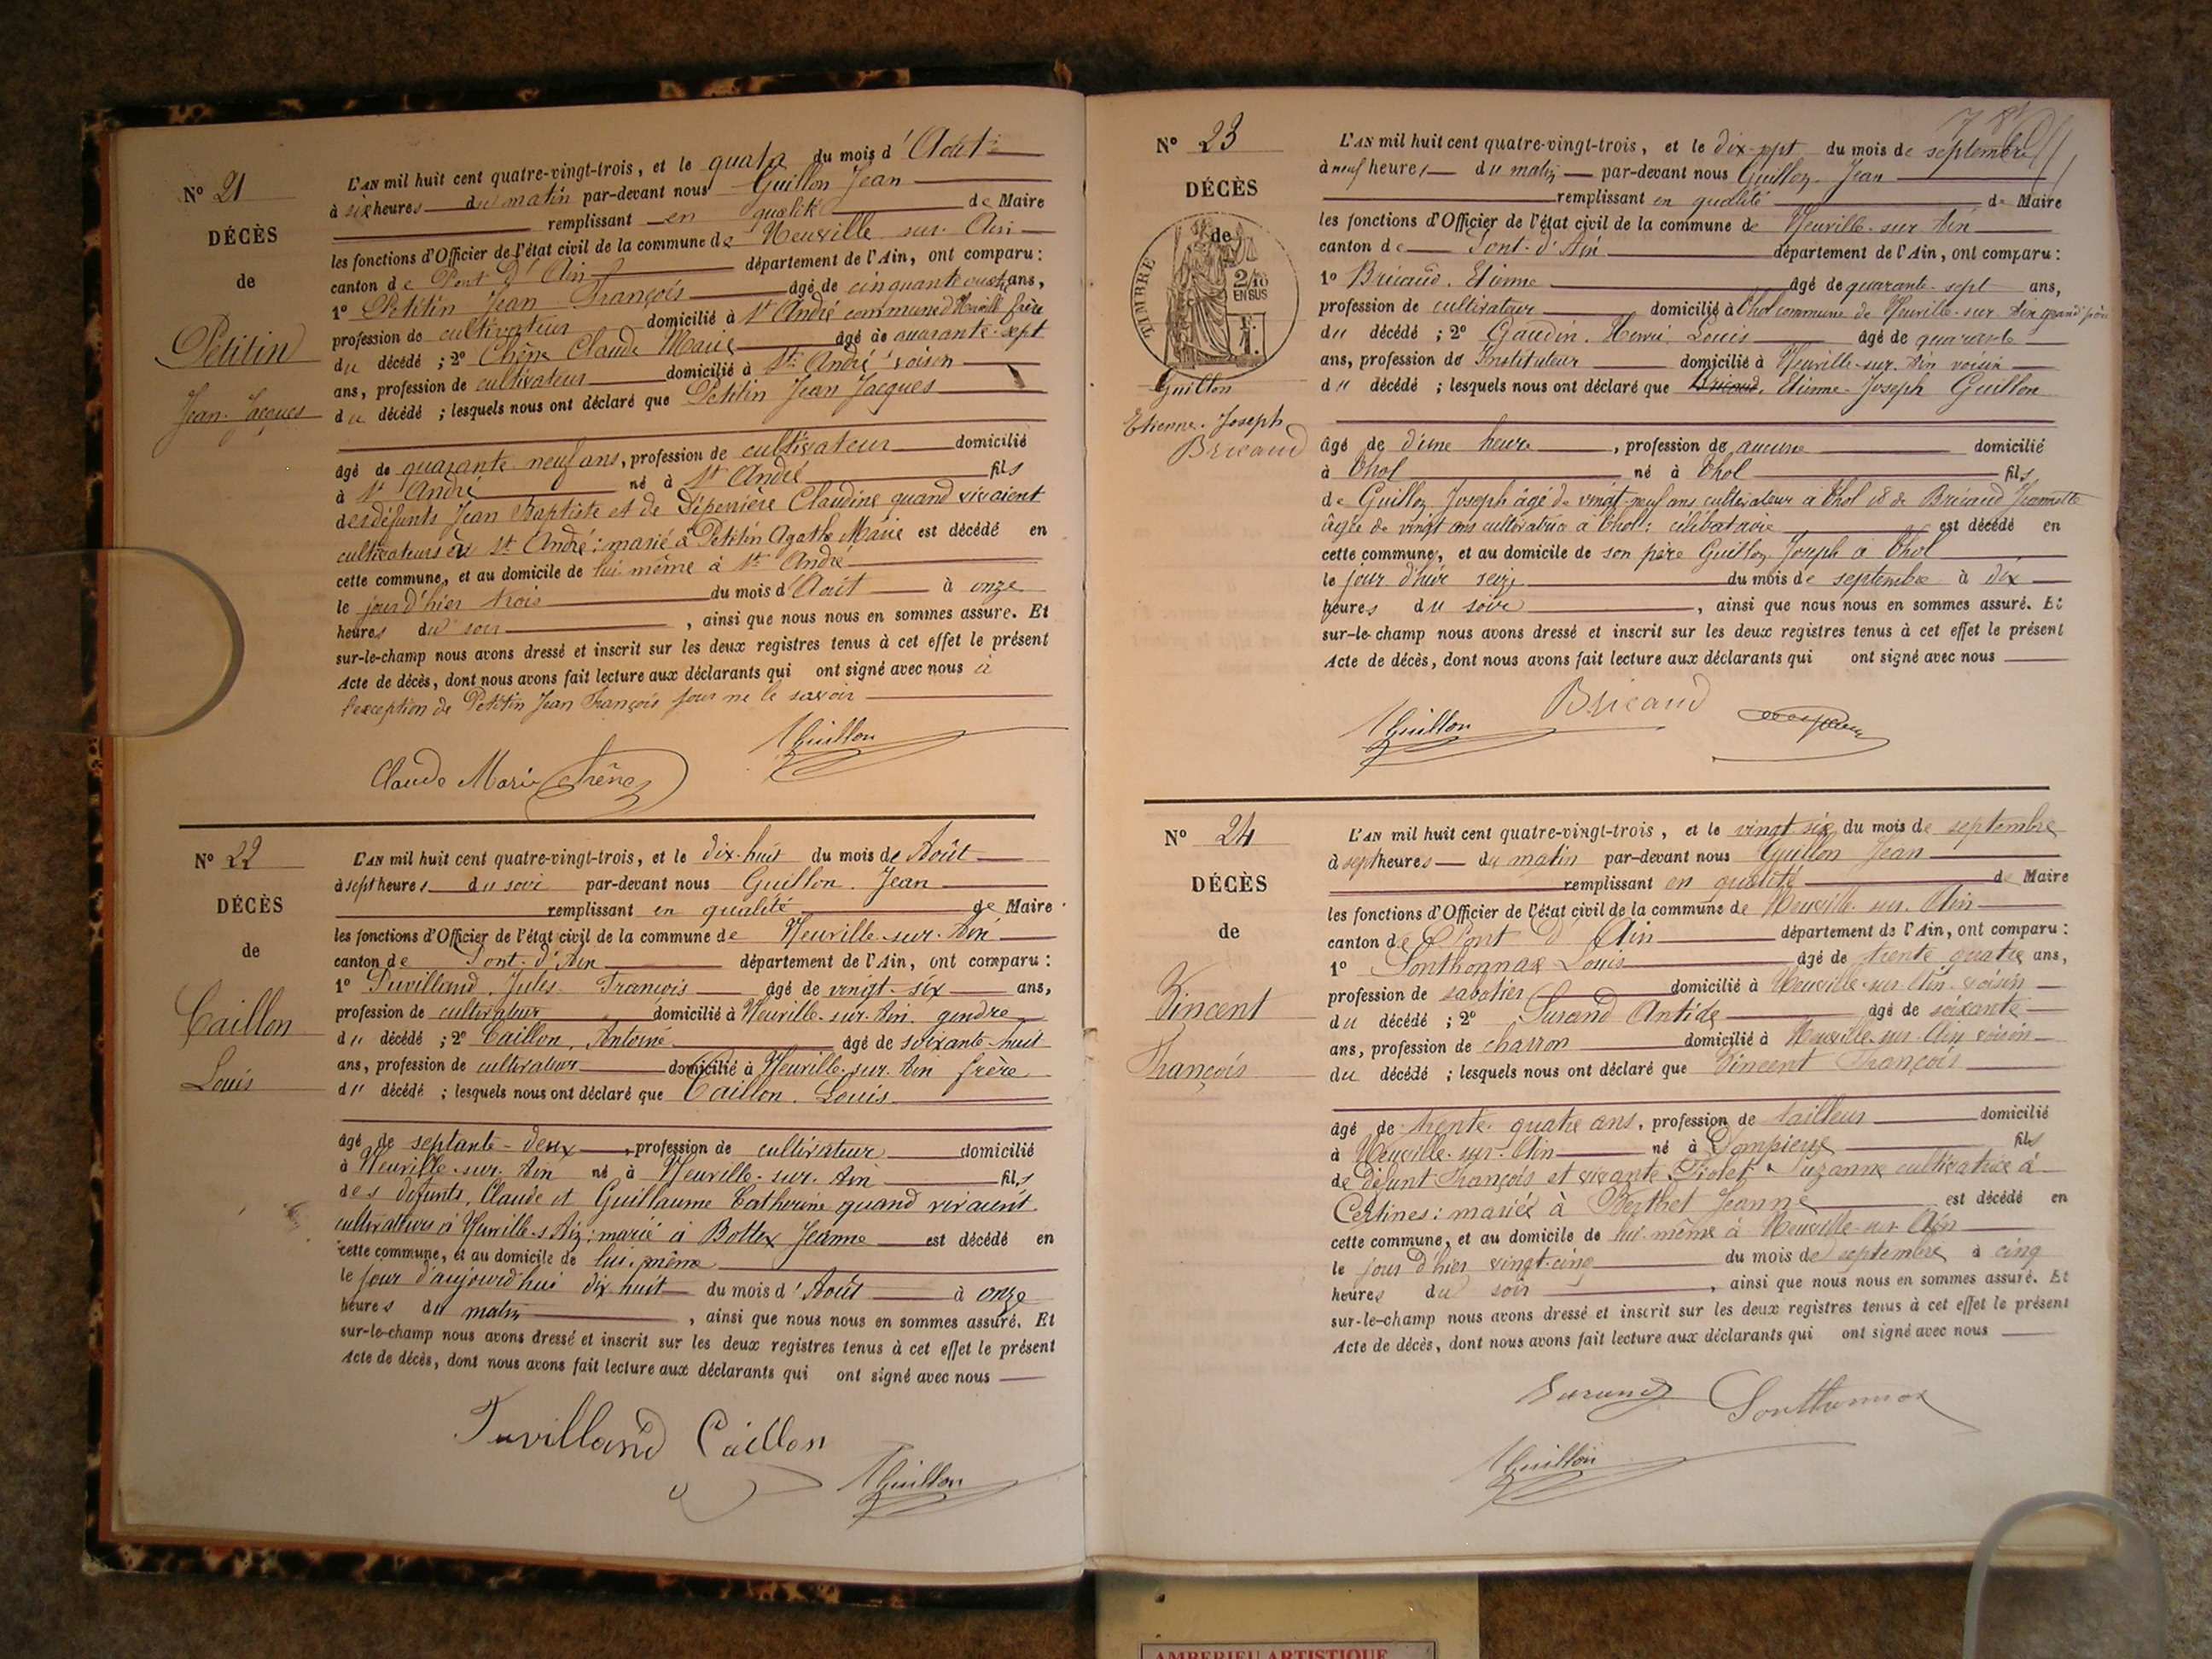 N° 21
DÉCÈS
de
Petitin
Jean-Jacques
L'AN mil huit cent quatre-vingt-trois, et le quatre du mois d'Août
à six heures du matin par-devant nous Guillon Jean
remplissant en qualité de Maire
les fonctions d'Officier de l'état civil de la commune de Neuville sur Ain
canton de Pont d'Ain département de l'Ain, ont comparu :
1° Petitin Jean François âgé de cinquante ans,
profession de cultivateur domicilié à St André commune d frère
du décédé ; 2° Chêne Claude Marie âgé de quarante-sept
ans, profession de cultivateur domicilié à St André voisin
du décédé ; lesquels nous ont déclaré que Petitin Jean Jacques
âgé de quarante neuf ans, profession de cultivateur domicilié
à St André né à St André fils
des défunts Jean Baptiste et de Claudine quand vivaient
cultivateurs à St André : marié à Petitin Agathe Marie est décédé en
cette commune, et au domicile de lui même à St André
le jour d'hier trois du mois d'Août à onze
heures du soir, ainsi que nous nous en sommes assuré. Et
sur-le-champ nous avons dressé et inscrit sur les deux registres tenus à cet effet le présent
Acte de décès, dont nous avons fait lecture aux déclarants qui ont signé avec nous à
l'exception de Petitin Jean François pour ne le savoir
Guillon
Claude Marie Chêne
N° 22
DÉCÈS
de
Caillon
Louis
L'AN mil huit cent quatre-vingt-trois, et le dix-huit du mois de Août
à sept heures du soir par-devant nous Guillon Jean
remplissant en qualité de Maire
les fonctions d'Officier de l'état civil de la commune de Neuville-sur-Ain
canton de Pont-d'Ain département de l'Ain, ont comparu :
1° Puvilland Jules François âgé de vingt-six ans,
profession de cultivateur domicilié à Neuville-sur-Ain gendre
du décédé ; 2° Caillon Antoine âgé de soixante-huit
ans, profession de cultivateur domicilié à Neuville-sur-Ain frère
du décédé ; lesquels nous ont déclaré que Caillon Louis
âgé de septante-deux, profession de cultivateur domicilié
à Neuville-sur-Ain né à Neuville-sur-Ain fils
des défunts Claude et Guillaume Catherine quand vivaient
cultivateurs à Neuville-s-Ain : marié à Bottex Jeanne est décédé en
cette commune, et au domicile de lui-même
le jour d'aujourd'hui dix-huit du mois d'Août à onze
heures du matin, ainsi que nous nous en sommes assuré. Et
sur-le-champ nous avons dressé et inscrit sur les deux registres tenus à cet effet le présent
Acte de décès, dont nous avons fait lecture aux déclarants qui ont signé avec nous
Puvilland Caillon
Guillon
N° 23
DÉCÈS
de
TIMBRE
2/10
EN SUS
1 F.
Guillon
Etienne-Joseph
Bricaud
L'AN mil huit cent quatre-vingt-trois, et le dix-sept du mois de septembre
à neuf heures du matin par-devant nous Guillon Jean
remplissant en qualité de Maire
les fonctions d'Officier de l'état civil de la commune de Neuville-sur-Ain
canton de Pont-d'Ain département de l'Ain, ont comparu :
1° Bricaud Etienne âgé de quarante-sept ans,
profession de cultivateur domicilié à Thol commune de Neuville-sur-Ain grand père
du décédé ; 2° Gaudin Henri Louis âgé de quarante
ans, profession de Instituteur domicilié à Neuville-sur-Ain voisin
du décédé ; lesquels nous ont déclaré que Bricaud Etienne-Joseph Guillon
âgé de d'une heure, profession de aucune domicilié
à Thol né à Thol fils
de Guillon Joseph âgé de vingt-neuf ans cultivateur à Thol et de Bricaud Jeannette
âgée de vingt ans cultivatrice à Thol : célibataire est décédé en
cette commune, et au domicile de son père Guillon Joseph à Thol
le jour d'hier seize du mois de septembre à dix
heures du soir, ainsi que nous nous en sommes assuré. Et
sur-le-champ nous avons dressé et inscrit sur les deux registres tenus à cet effet le présent
Acte de décès, dont nous avons fait lecture aux déclarants qui ont signé avec nous
Guillon Bricaud
N° 24
DÉCÈS
de
Vincent
François
L'AN mil huit cent quatre-vingt-trois, et le vingt-six du mois de septembre
à sept heures du matin par-devant nous Guillon Jean
remplissant en qualité de Maire
les fonctions d'Officier de l'état civil de la commune de Neuville-sur-Ain
canton de Pont d'Ain département de l'Ain, ont comparu :
1° Sonthonnax Louis âgé de trente quatre ans,
profession de sabotier domicilié à Neuville-sur-Ain voisin
du décédé ; 2° Durand Antide âgé de soixante
ans, profession de charron domicilié à Neuville-sur-Ain voisin
du décédé ; lesquels nous ont déclaré que Vincent François
âgé de trente-quatre ans, profession de tailleur domicilié
à Neuville-sur-Ain né à Dompierre fils
de défunt François et vivante Suzanne cultivatrice à
Certines : marié à Berthet Jeanne est décédé en
cette commune, et au domicile de lui-même à Neuville-sur-Ain
le jour d'hier vingt-cinq du mois de septembre à cinq
heures du soir, ainsi que nous nous en sommes assuré. Et
sur-le-champ nous avons dressé et inscrit sur les deux registres tenus à cet effet le présent
Acte de décès, dont nous avons fait lecture aux déclarants qui ont signé avec nous
Durand Sonthonnax
Guillon
AMBERIEU ARTISTIQUE